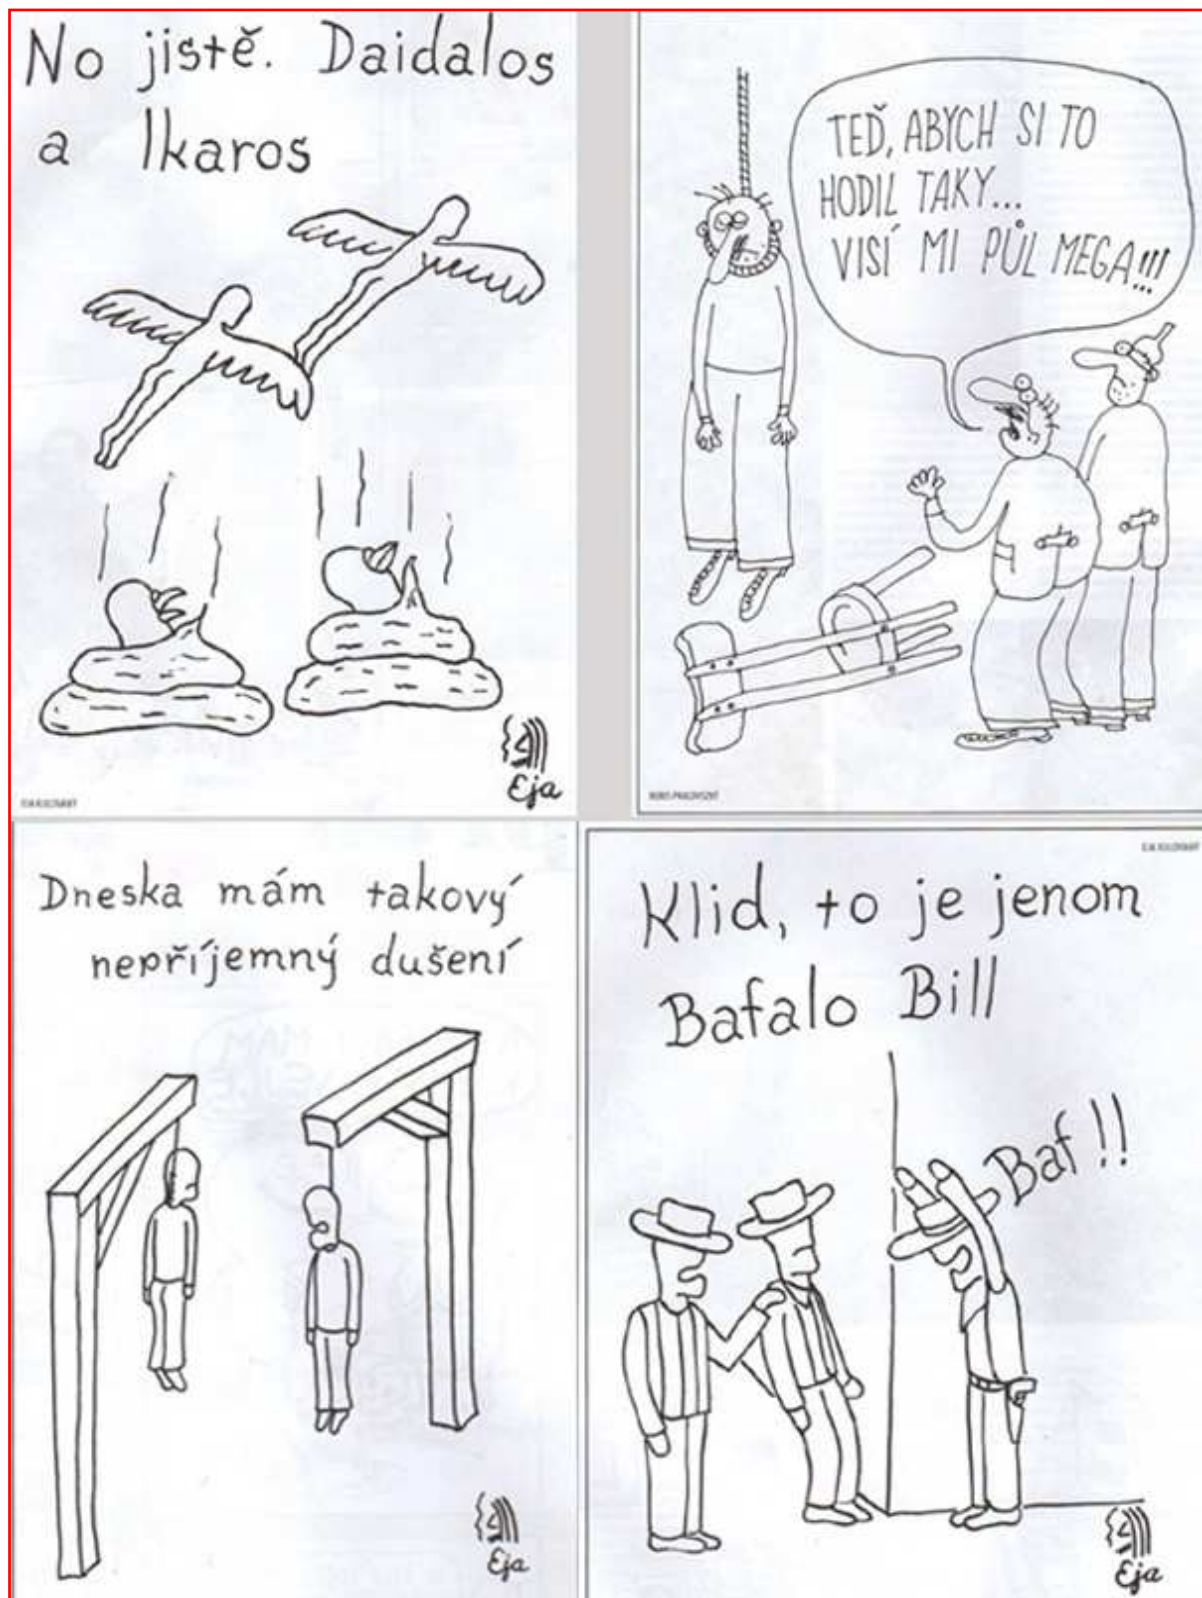 No jistě. Daidalos
a Ikaros
Eja
TEĎ, ABYCH SI TO
HODIL TAKY...
VISÍ MI PŮL MEGA!!!
Dneska mám takový
nepříjemný dušení
Eja
Klid, to je jenom
Bafalo Bill
Baf!!
Eja